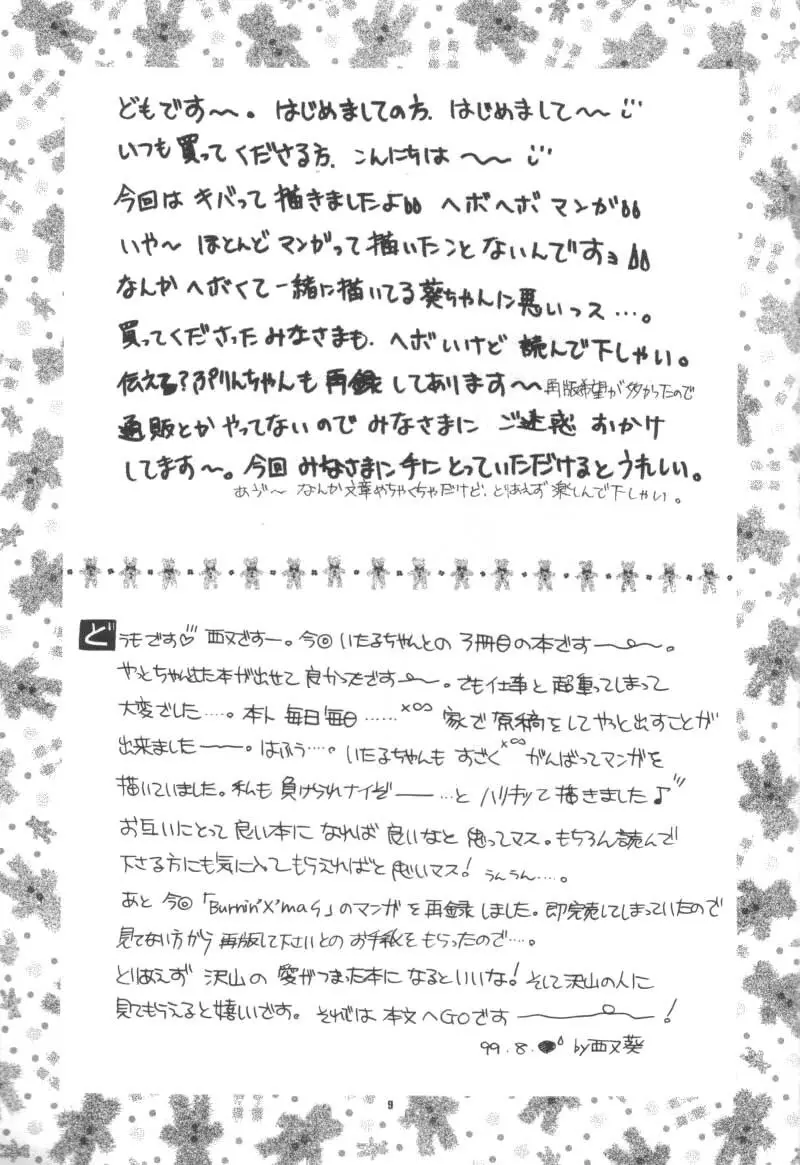 どもです〜。はじめましての方、はじめまして〜〜
いつも買ってくださる方、こんにちは〜〜
今回はキバって描きましたよ ヘボヘボマンガ
いや〜 ほとんどマンガって描いたことないんですョ
なんかヘボくて一緒に描いてる葵ちゃんに悪いっス…。
買ってくださったみなさまも、ヘボいけど読んで下しゃい。
伝える?ぷりんちゃんも再録してあります〜 再版希望が多かったので
通販とかやってないのでみなさまにご迷惑おかけ
してます〜。今回みなさまに手にとっていただけるとうれしい。
あぅ〜 なんか文章めちゃくちゃだけど、とりあえず楽しんで下しゃい。
どうもです♡ 西又ですー。今回いたるちゃんとの3冊目の本です――。
やっとちゃんとした本が出せて良かったです――。でも仕事と超重ってしまって
大変でした……。本ト毎日毎日……×∞ 家で原稿をしてやっと出すことが
出来ました――。はふぅ…。いたるちゃんもすごく×∞がんばってマンガを
描いていました。私も負けられナイぞ――…とハリキッて描きました♪
お互いにとって良い本になれば良いなと思ってマス。もちろん読んで
下さる方にも気に入ってもらえればと思いマス! うんうん…。
あと今回「Burnin'X'mas」のマンガを再録しました。即完売してしまっていたので
見てない方から再版して下さいとのお手紙をもらったので…。
とりあえず沢山の愛がつまった本になるといいな! そして沢山の人に
見てもらえると嬉しいです。それでは本文へGOです――!
99.8. by西又葵
9